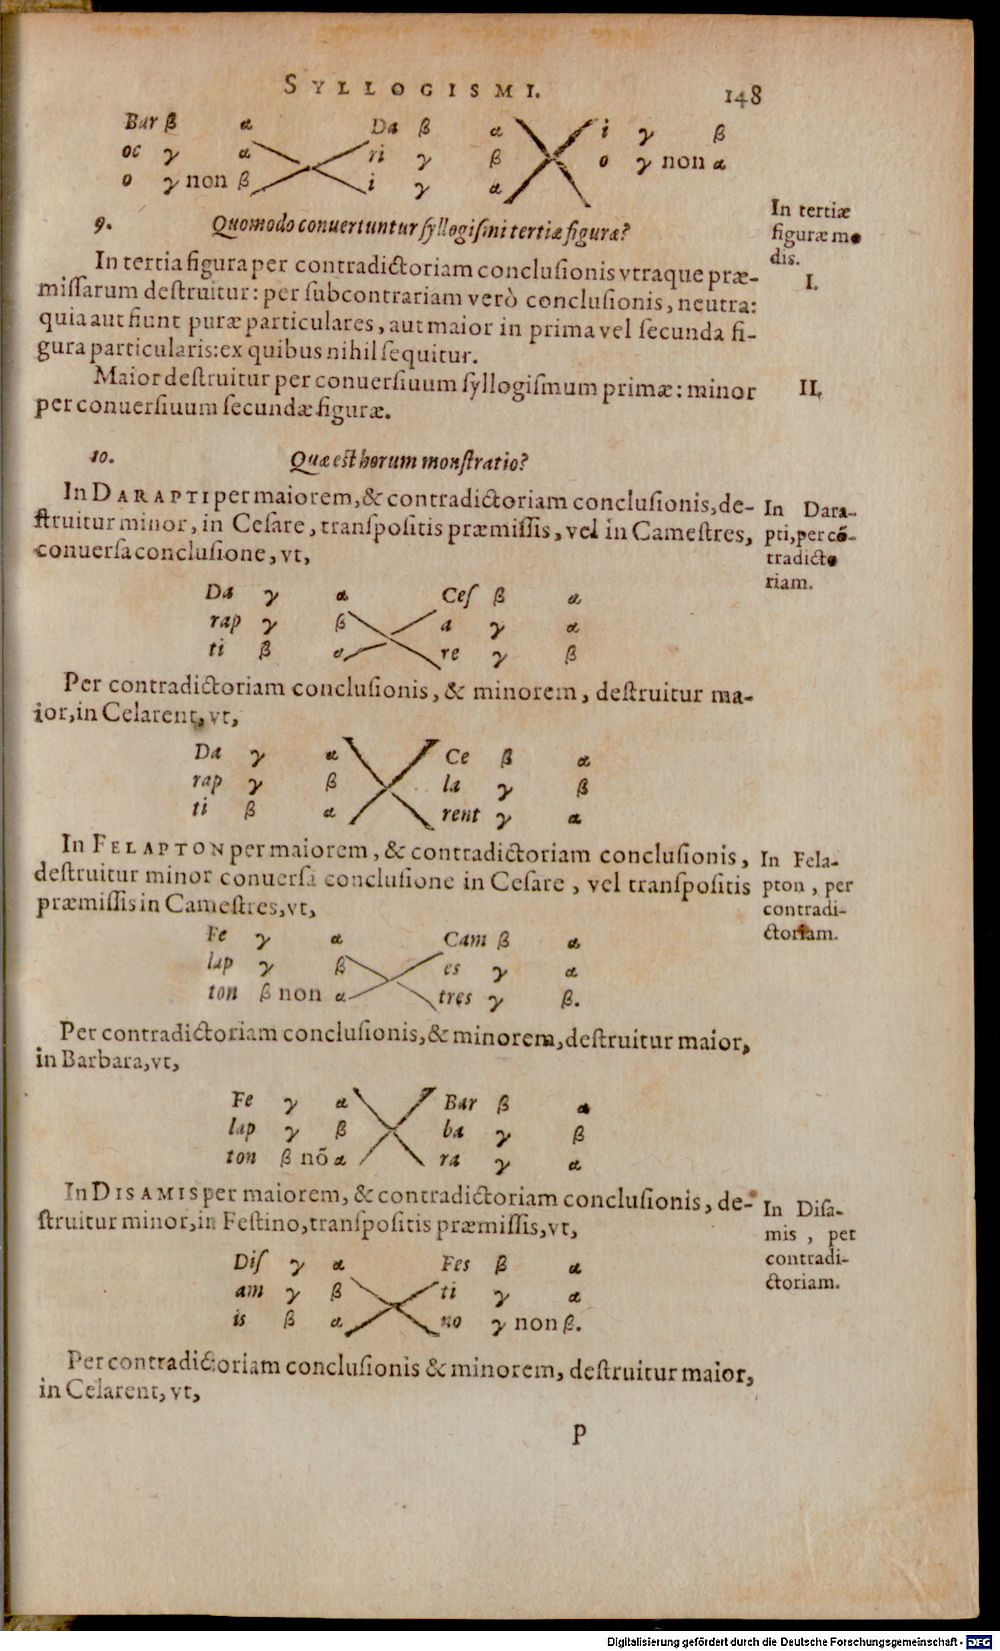 SYLLOGISMI. 148
Bar β α Da β α i γ β
oc γ α ri γ β o γ non α
o γ non β i γ α
9. Quomodo conuertuntur syllogismi tertiæ figuræ?
In tertiæ
figuræ mo
dis.
In tertia figura per contradictoriam conclusionis vtraque præ-
I.
missarum destruitur: per subcontrariam verò conclusionis, neutra:
quia aut fiunt puræ particulares, aut maior in prima vel secunda fi-
gura particularis: ex quibus nihil sequitur.
Maior destruitur per conuersiuum syllogismum primæ: minor
II.
per conuersiuum secundæ figuræ.
10. Quæ est horum monstratio?
In DARAPTI per maiorem, & contradictoriam conclusionis, de-
struitur minor, in Cesare, transpositis præmissis, vel in Camestres,
conuersa conclusione, vt,
In Dara-
pti, per cõ-
tradicto
riam.
Da γ α Ces β α
rap γ β a γ α
ti β α re γ β
Per contradictoriam conclusionis, & minorem, destruitur ma-
ior, in Celarent, vt,
Da γ α Ce β α
rap γ β la γ β
ti β α rent γ α
In FELAPTON per maiorem, & contradictoriam conclusionis,
destruitur minor conuersa conclusione in Cesare, vel transpositis
præmissis in Camestres, vt,
In Fela-
pton, per
contradi-
ctoriam.
Fe γ α Cam β α
lap γ β es γ α
ton β non α tres γ β.
Per contradictoriam conclusionis, & minorem, destruitur maior,
in Barbara, vt,
Fe γ α Bar β α
lap γ β ba γ β
ton β nõ α ra γ α
In DISAMIS per maiorem, & contradictoriam conclusionis, de-
struitur minor, in Festino, transpositis præmissis, vt,
In Disa-
mis, per
contradi-
ctoriam.
Dis γ α Fes β α
am γ β ti γ α
is β α no γ non β.
Per contradictoriam conclusionis & minorem, destruitur maior,
in Celarent, vt,
P
Digitalisierung gefördert durch die Deutsche Forschungsgemeinschaft - DFG